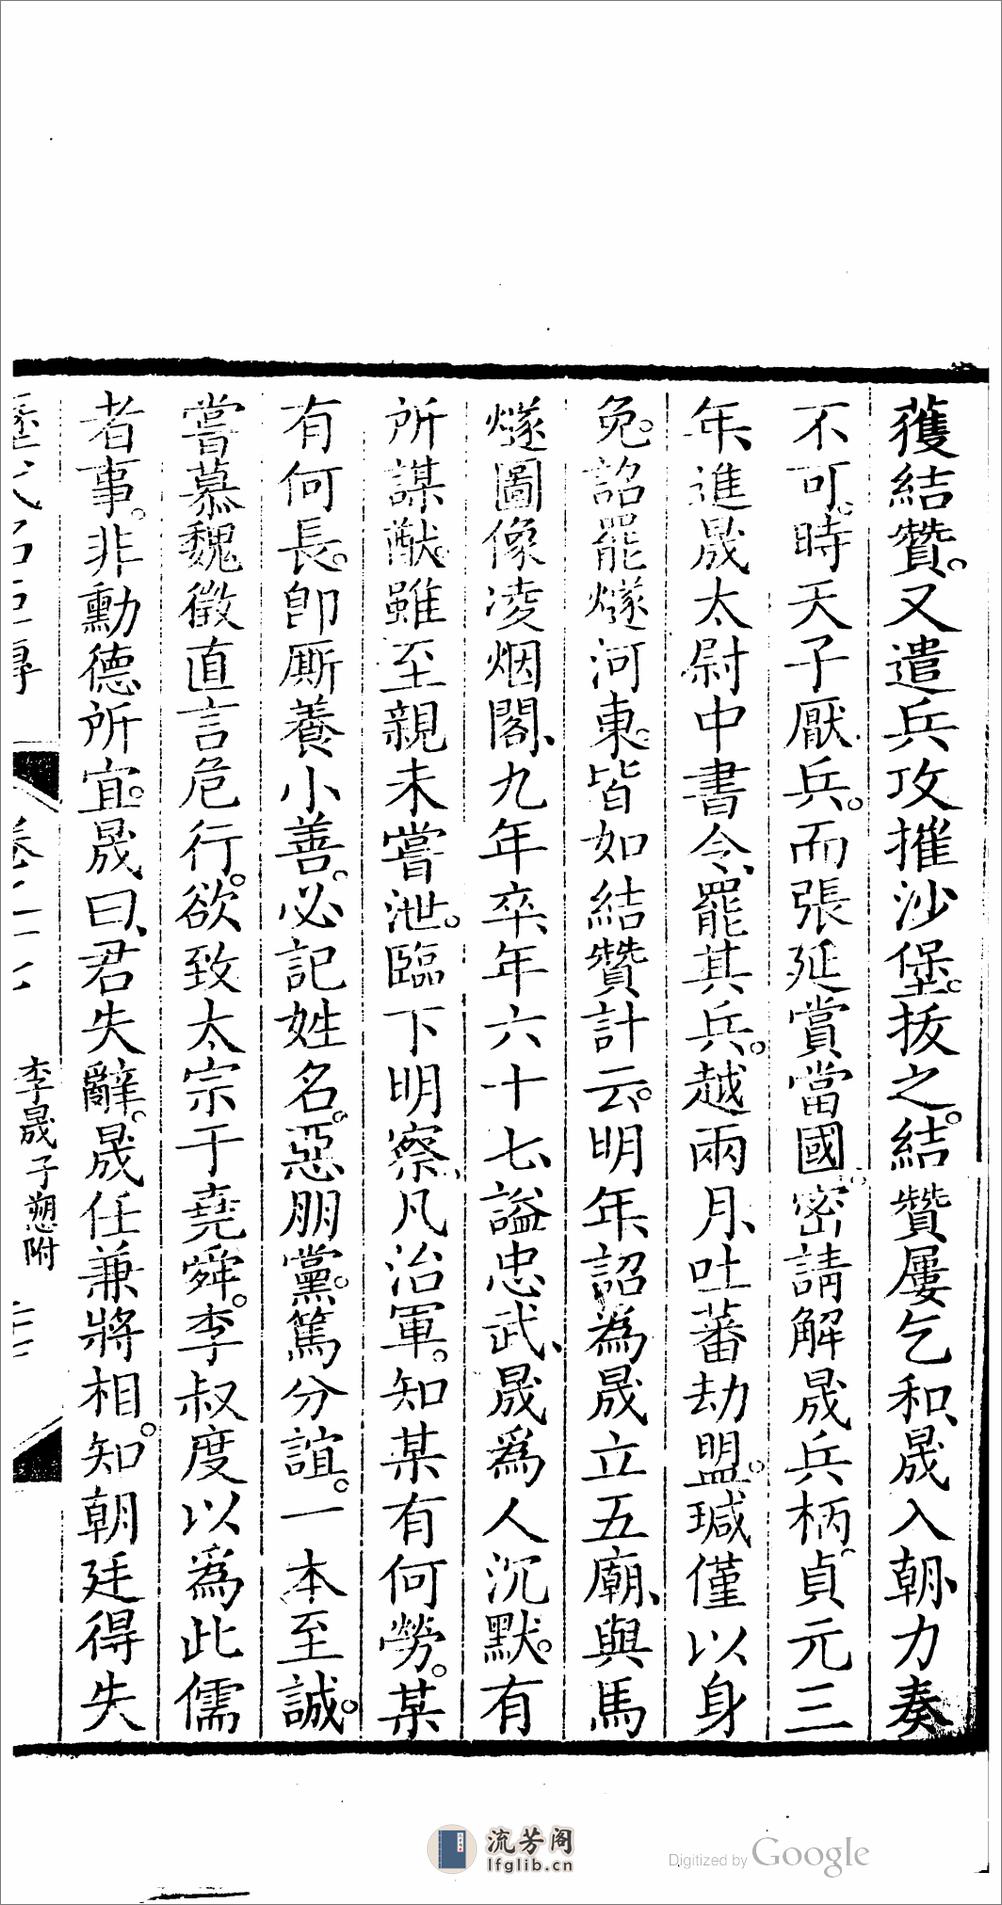 獲結贊。又遣兵攻摧沙堡。拔之。結贊屢乞和、晟入朝、力奏
不可。時天子厭兵。而張延賞當國密請解晟兵柄。貞元三
年、進晟太尉中書令、罷其兵。越兩月、吐蕃劫盟。瑊僅以身
免。詔罷燧河東。皆如結贊計云。明年、詔為晟立五廟、與馬
燧圖像凌烟閣、九年卒、年六十七、謚忠武、晟為人沉默。有
所謀猷。雖至親未嘗泄。臨下明察、凡治軍。知某有何勞。某
有何長。卽厮養小善。必記姓名。惡朋黨。篤分誼。一本至誠。
嘗慕魏徵直言危行。欲致太宗于堯舜。李叔度以為此儒
者事。非勳德所宜。晟曰、君失辭。晟任兼將相。知朝廷得失
歷代名臣傳
卷二十七
李晟子愬附
流芳阁
lfglib.cn
Digitized by Google